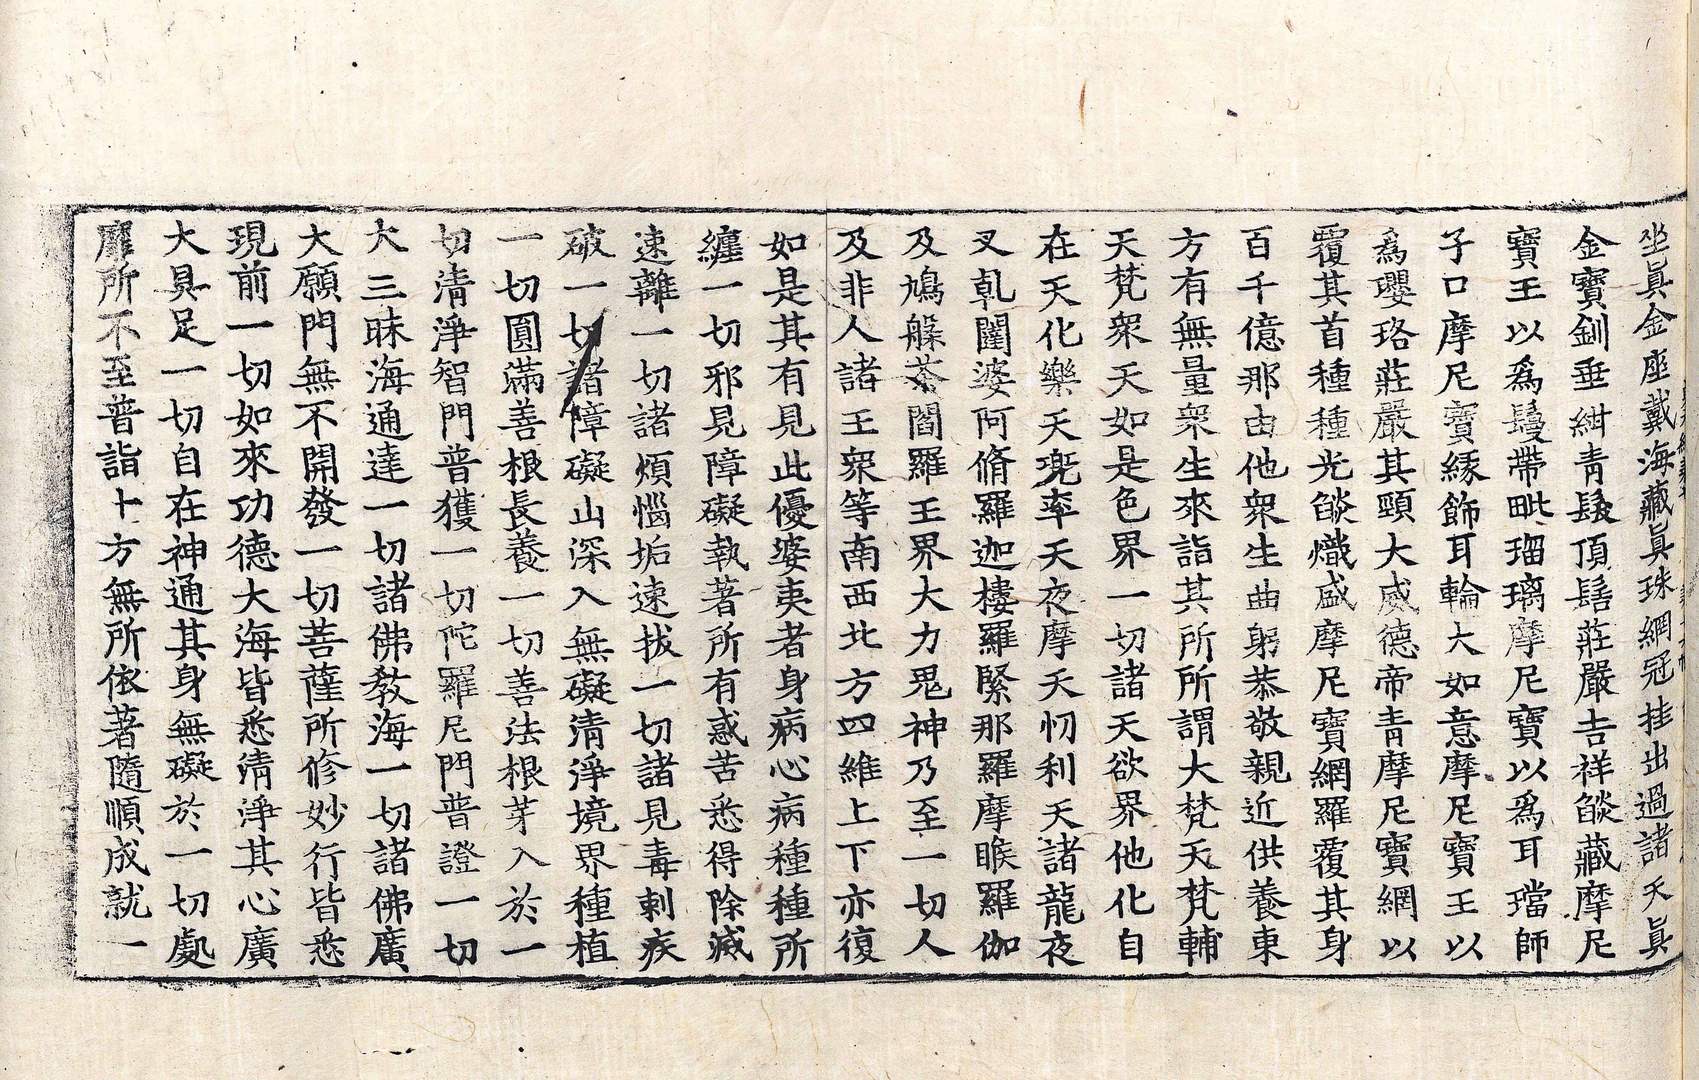 坐眞金座戴海藏眞珠網冠挂出過諸天眞
金寶釧垂紺青髮頂髻莊嚴吉祥燄藏摩尼
寶王以爲鬘帶毗瑠璃摩尼寶以爲耳璫師
子口摩尼寶緣飾耳輪大如意摩尼寶王以
爲瓔珞莊嚴其頸大威德帝青摩尼寶網以
覆其首種種光燄熾盛摩尼寶網羅覆其身
百千億那由他衆生曲躬恭敬親近供養東
方有無量衆生來詣其所所謂大梵天梵輔
天梵衆天如是色界一切諸天欲界他化自
在天化樂天兜率天夜摩天忉利天諸龍夜
叉乹闥婆阿脩羅迦樓羅緊那羅摩睺羅伽
及鳩槃荼閻羅王界大力鬼神乃至一切人
及非人諸王衆等南西北方四維上下亦復
如是其有見此優婆夷者身病心病種種所
纏一切邪見障礙執著所有惑苦悉得除滅
速離一切諸煩惱垢速拔一切諸見毒刺疾
破一切諸障礙山深入無礙清淨境界種植
一切圓滿善根長養一切善法根芽入於一
切清淨智門普獲一切陀羅尼門普證一切
大三昧海通達一切諸佛教海一切諸佛廣
大願門無不開發一切菩薩所修妙行皆悉
現前一切如來功德大海皆悉清淨其心廣
大具足一切自在神通其身無礙於一切處
靡所不至普詣十方無所依著隨順成就一